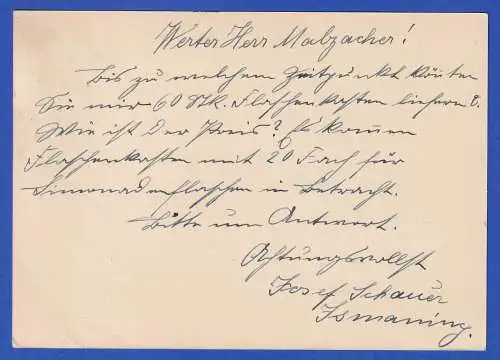 Werter Herr Malzacher!
Bis zu welchem Zeitpunkt könten
Sie mir 60 Stk. Flaschenkasten liefern u.
Wie ist der Preis? Es kommen
Flaschenkasten mit 20 Fach für
Limonadenflaschen in Betracht.
Bitte um Antwort.
Achtungsvollst
Josef Schauer
Ismaning.